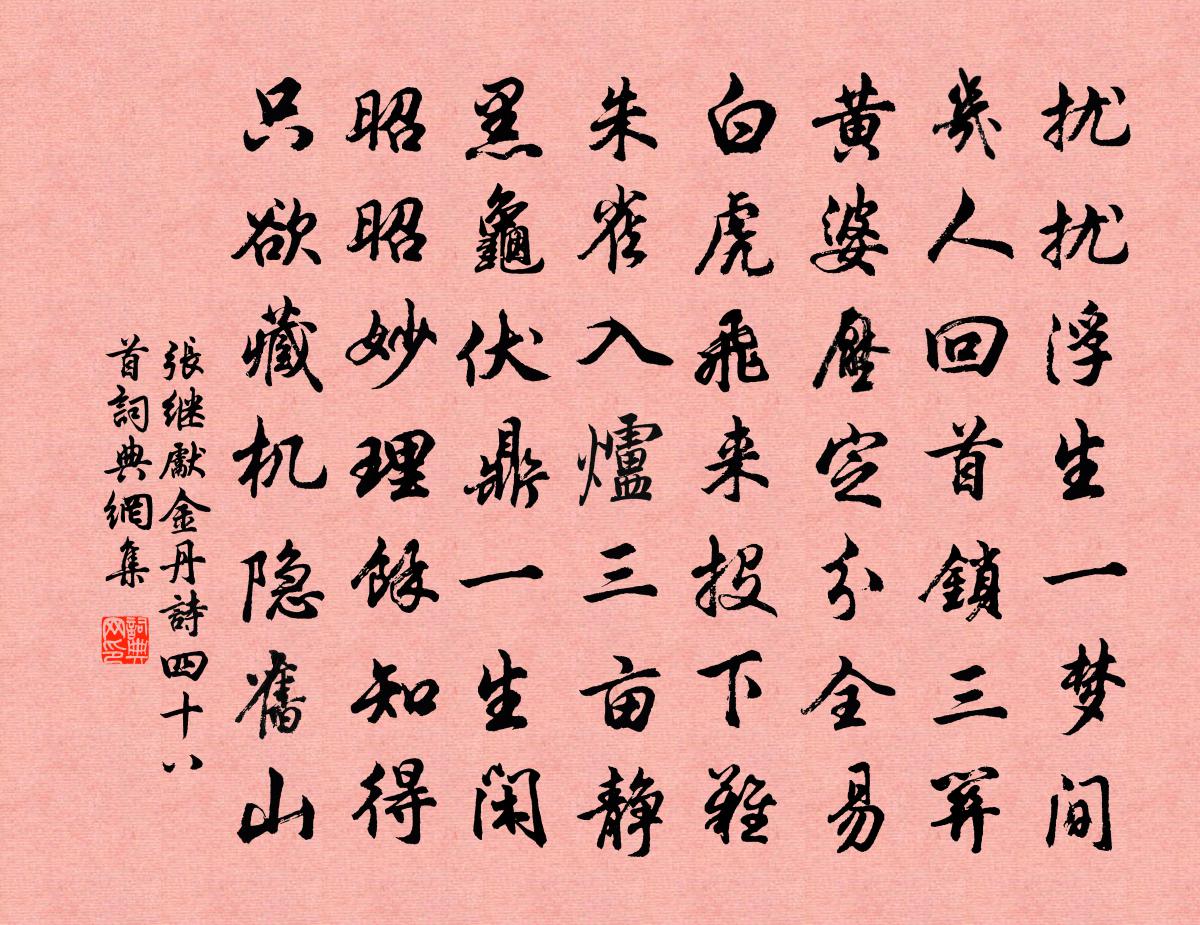 扰扰浮生一梦间
幾人回首鎖三関
黄婆壓定分全易
白虎飛来投下難
朱雀入爐三亩静
黑龜伏鼎一生闲
昭昭妙理餘知得
只欲藏机隐舊山
張继獻金丹詩四十八
首詞典網集
詞典
网印